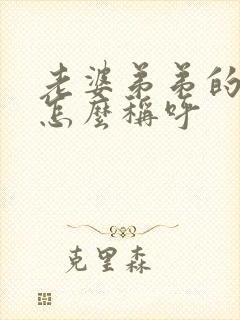 老婆弟弟的
怎麼稱呼
克里森